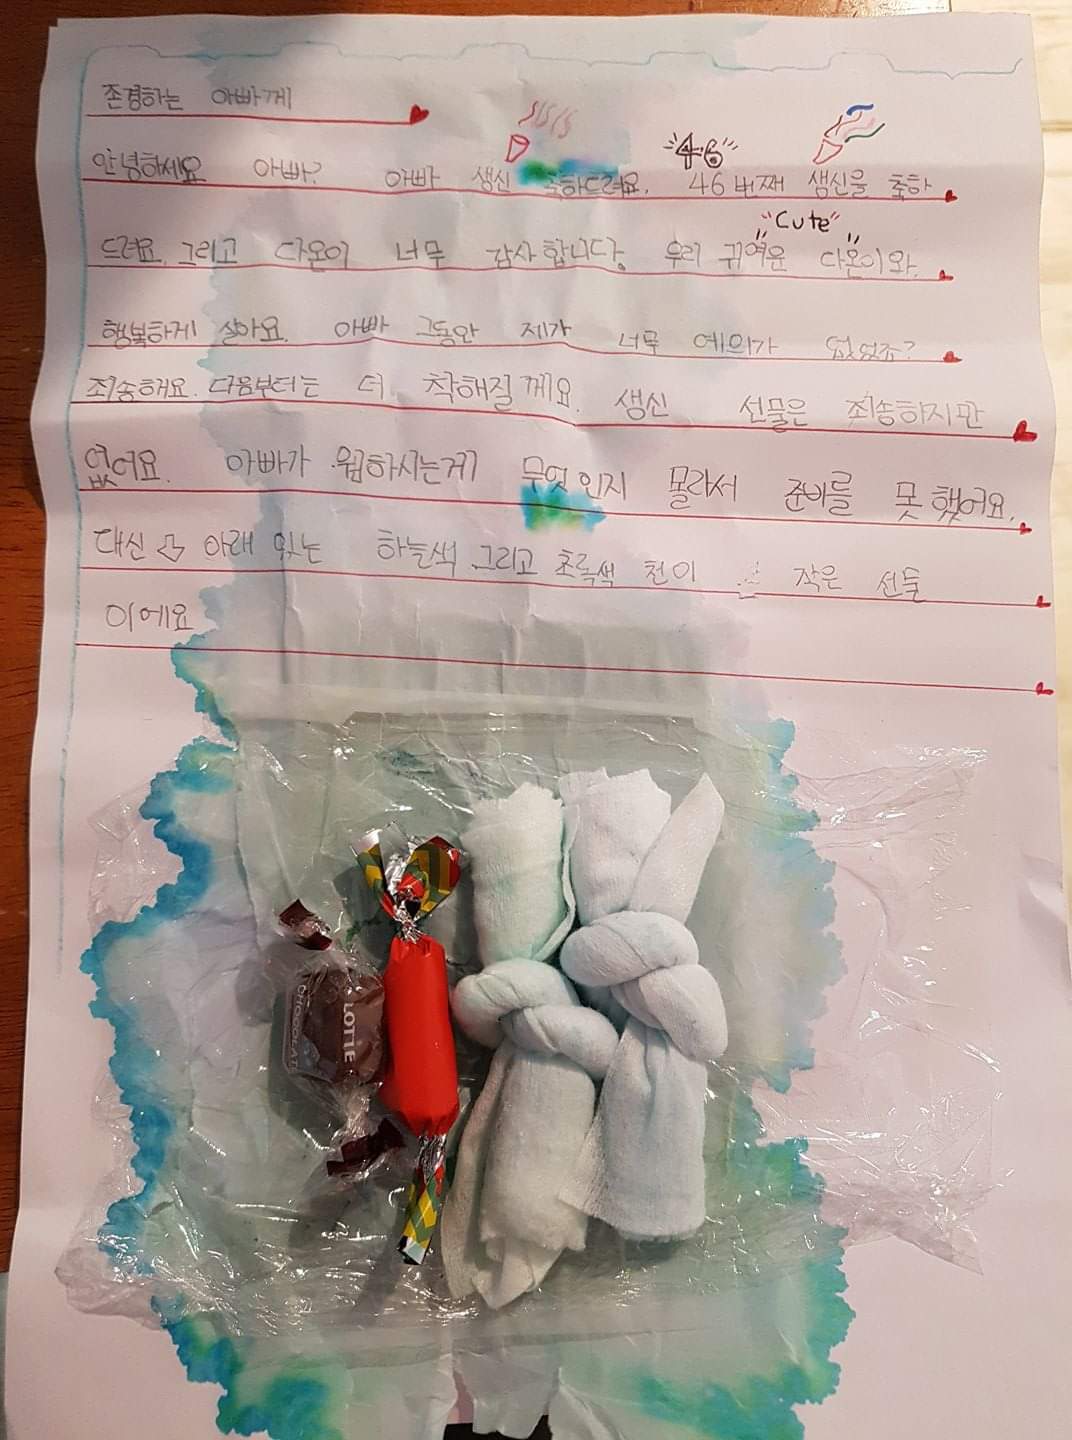 존경하는 아빠께
안녕하세요 아빠? 아빠 생신 축하드려요. 46 번째 생신을 축하
"46"
드려요. 그리고 다온이 너무 감사합니다. 우리 귀여운 다온이와
"Cute"
행복하게 살아요. 아빠 그동안 제가 너무 예의가 없었죠?
죄송해요. 다음부터는 더 착해질께요. 생신 선물은 죄송하지만
없어요. 아빠가 원하시는게 무엇인지 몰라서 준비를 못했어요.
대신 아래 있는 하늘색 그리고 초록색 천이 작은 선물
이에요
LOTTE
CHOCOLAT